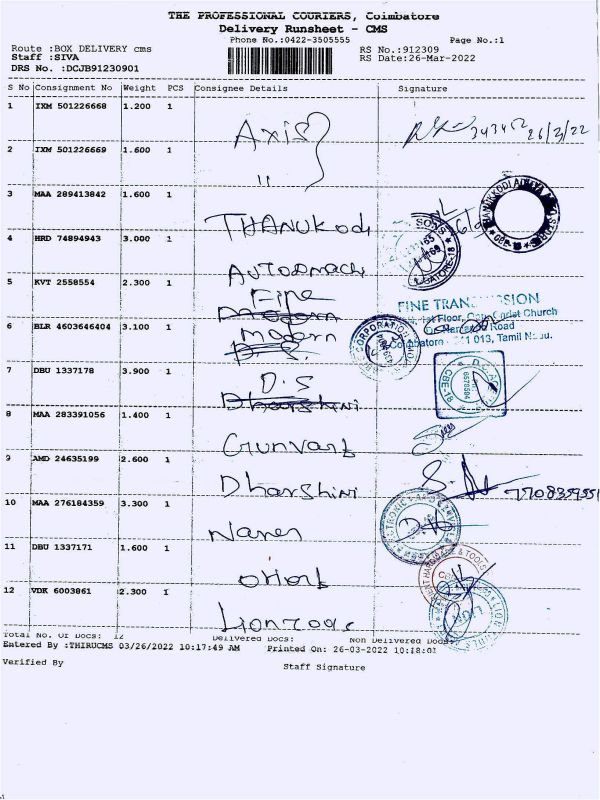 THE PROFESSIONAL COURIERS, Coimbatore
Delivery Runsheet - CMS
Phone No.:0422-3505555 Page No.:1
Route :BOX DELIVERY cms RS No.:912309
Staff :SIVA RS Date:26-Mar-2022
DRS No. :DCJB91230901
S No Consignment No Weight PCS Consignee Details Signature
1 IXM 501226668 1.200 1 Axis 26/3/22
2 IXM 501226669 1.600 1 "
3 MAA 289413842 1.600 1 THANUKodi
4 HRD 74894943 3.000 1 AUTOomach
5 KVT 2558554 2.300 1 Fine
FINE TRANSMISSION
Floor, Christ Church
Road
Coimbatore 013, Tamil Nadu.
6 BLR 4603646404 3.100 1 Modern
7 DBU 1337178 3.900 1 D.S
Dharshini
8 MAA 283391056 1.400 1 Gunvant
9 AMD 24635199 2.600 1 Dharshini 7708359551
10 MAA 276184359 3.300 1 Naren
11 DBU 1337171 1.600 1 Orient
12 VDK 6003861 2.300 1
Total No. Of Docs: 12 Delivered Docs: Non Delivered Docs:
Entered By :THIRUCMS 03/26/2022 10:17:49 AM Printed On: 26-03-2022 10:18:01
Verified By Staff Signature